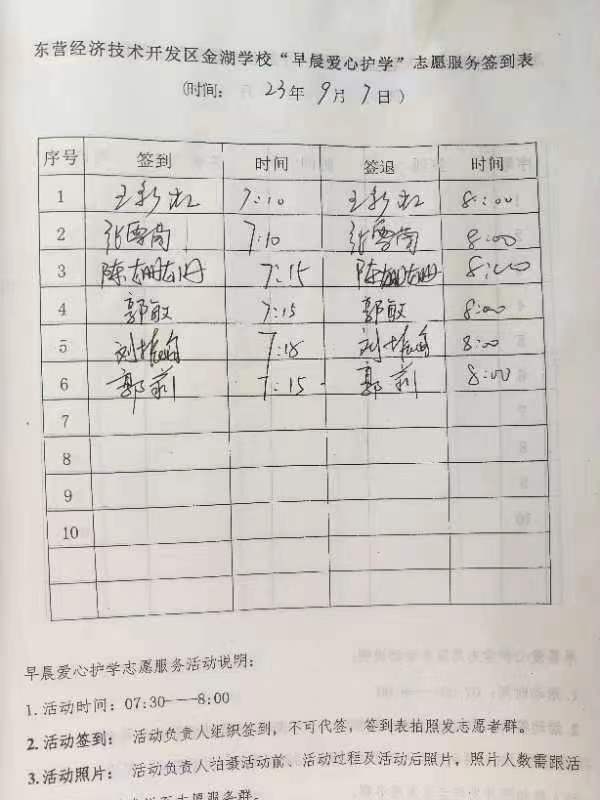 东营经济技术开发区金湖学校“早晨爱心护学”志愿服务签到表
(时间: 23年9月7日)
序号 签到 时间 签退 时间
1 王新红 7:10 王新红 8:00
2 张雪菊 7:10 张雪菊 8:00
3 陈姗姗 7:15 陈姗姗 8:00
4 郭敏 7:15 郭敏 8:00
5 刘 7:18 刘 8:00
6 郭莉 7:15 郭莉 8:00
7
8
9
10
早晨爱心护学志愿服务活动说明:
1.活动时间:07:30---8:00
2.活动签到: 活动负责人组织签到,不可代签,签到表拍照发志愿者群。
3.活动照片: 活动负责人拍摄活动前、活动过程及活动后照片,照片人数需跟活
志愿服务群。